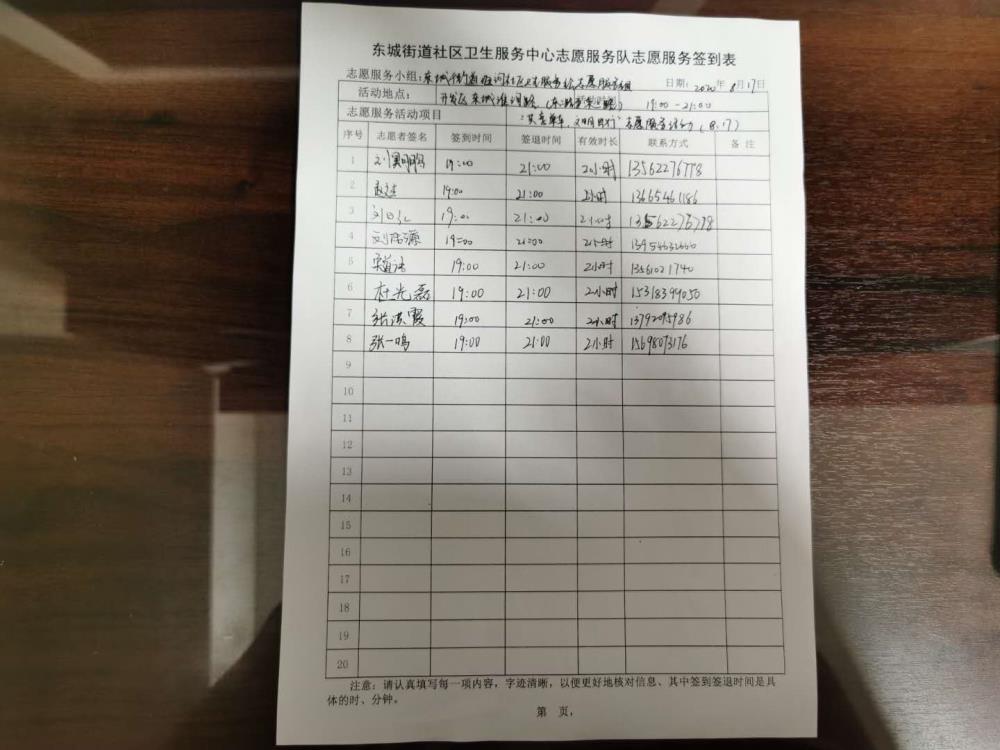 东城街道社区卫生服务中心志愿服务队志愿服务签到表
志愿服务小组:东城街道 社区卫生服务站志愿服务组 日期: 2020年8月17日
活动地点: 开发区东城 19:00-21:00
志愿服务活动项目 "共享单车,文明出行"志愿服务活动(8.17)
序号 志愿者签名 签到时间 签退时间 有效时长 联系方式 备注
1 19:00 21:00 2小时 13562276778
2 19:00 21:00 2小时 13665461186
3 19:00 21:00 2小时 13562276778
4 19:00 21:00 2小时
5 19:00 21:00 2小时 13561021740
6 杜光磊 19:00 21:00 2小时 15318399050
7 张洪霞 19:00 21:00 2小时 13792095986
8 张一鸣 19:00 21:00 2小时 15698073176
9
10
11
12
13
14
15
16
17
18
19
20
注意:请认真填写每一项内容,字迹清晰,以便更好地核对信息、其中签到签退时间是具
体的时、分钟。
第 页,